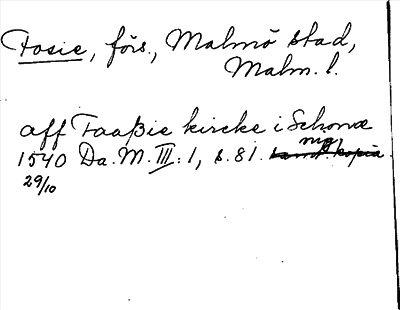 Fosie, förs., Malmö stad,
Malm. l.
aff Faaßie kircke i Schonæ
1540 Da. M. III: 1, s. 81. nyg
29/10